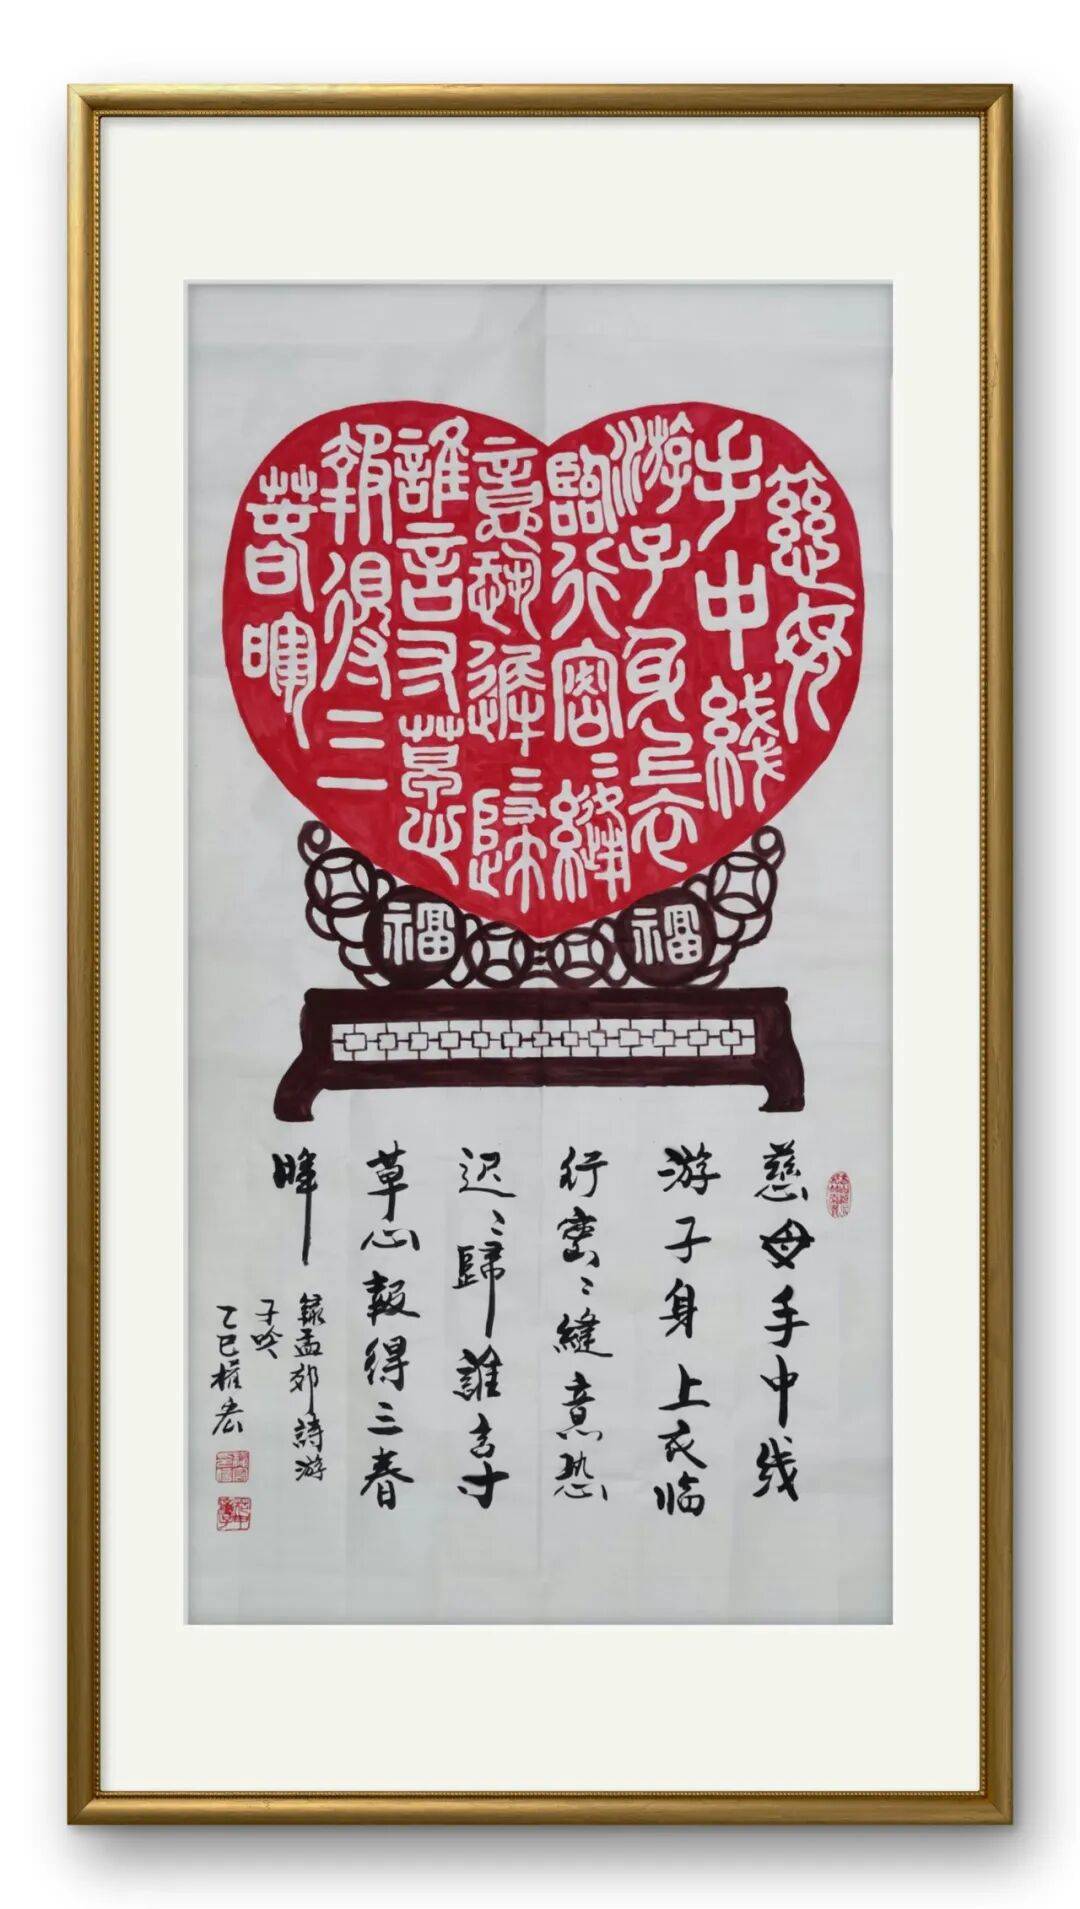 慈母
手中线
游子身上衣
臨行密〻縫
意恐遲〻歸
誰言寸草心
報得三
春暉
福
福
慈母手中线
游子身上衣临
行密〻缝意恐
迟〻歸誰言寸
草心報得三春
暉
錄孟郊詩游
子吟
乙巳权宏